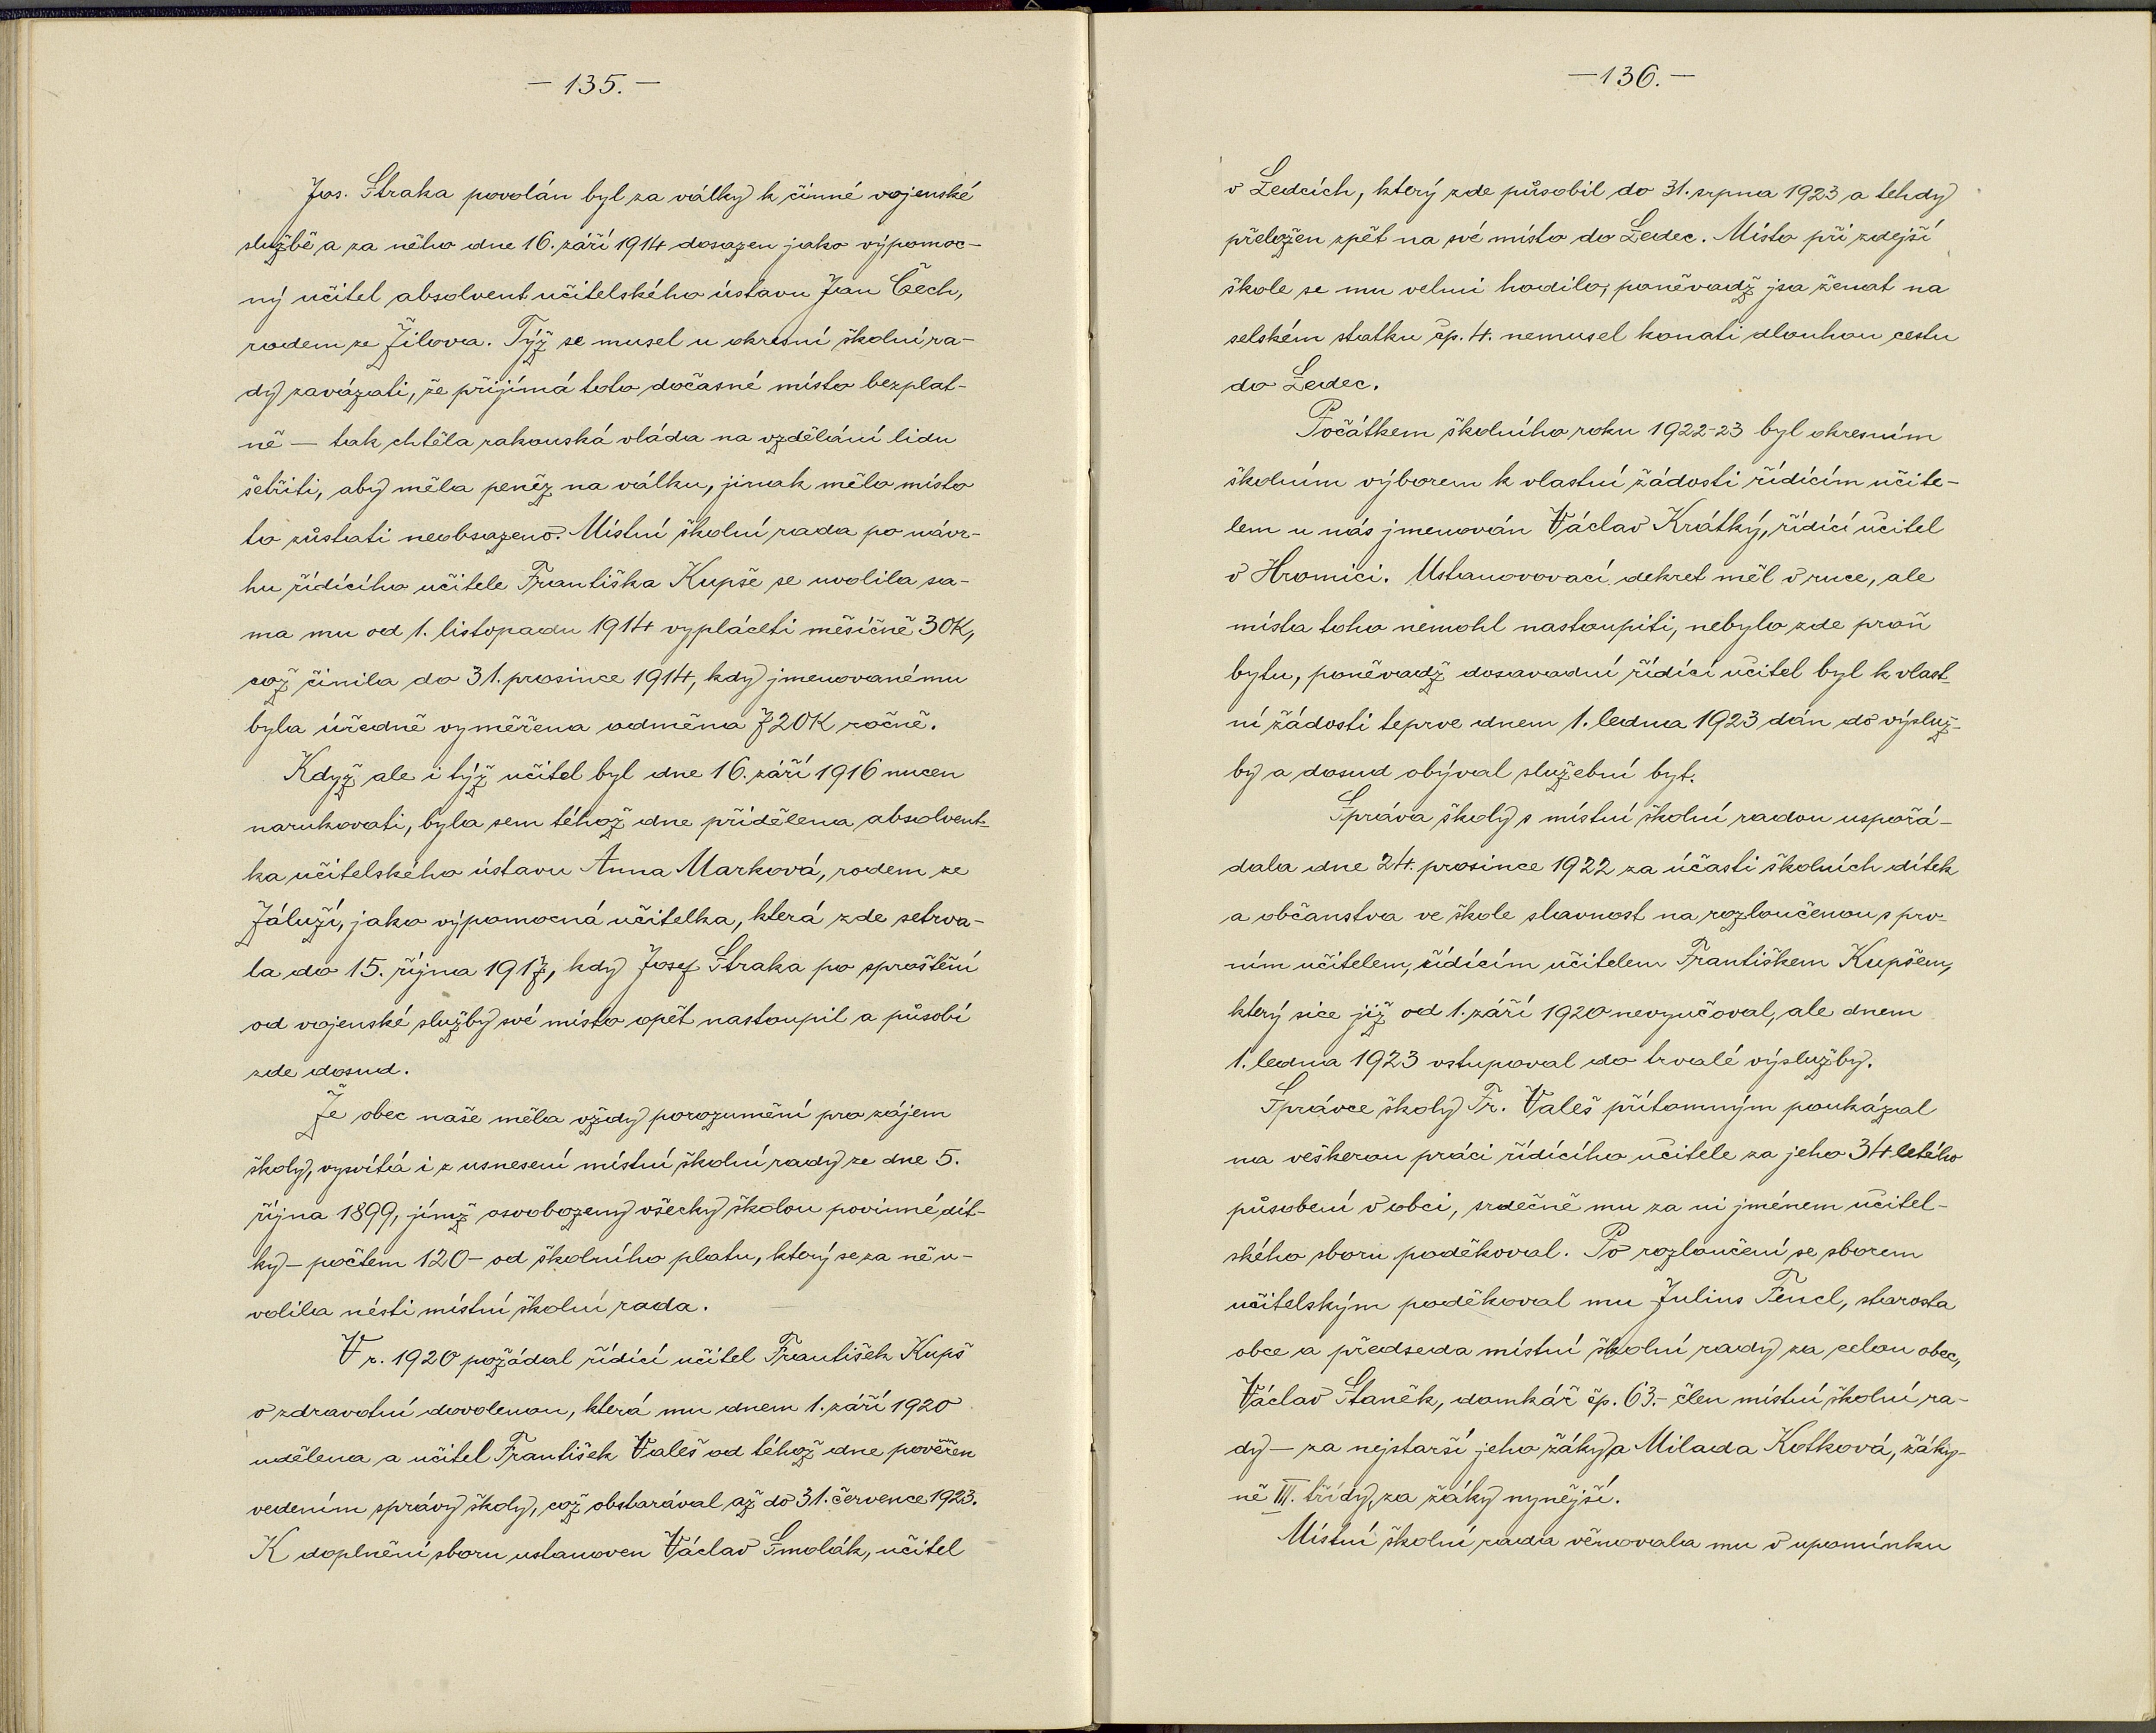 — 135. —
Jos. Straka povolán byl za války k činné vojenské
službě a za něho dne 16. září 1914 dosazen jako výpomoc-
ný učitel absolvent učitelského ústavu Jan Čech,
rodem ze Žilova. Týž se musel u okresní školní ra-
dy zavázati, že přijímá toto dočasné místo bezplat-
ně — tak chtěla rakouská vláda na vzdělání lidu
šetřiti, aby měla peněz na válku, jinak mělo místo
to zůstati neobsazeno. Místní školní rada po návr-
hu řídícího učitele Františka Kupše se uvolila sa-
ma mu od 1. listopadu 1914 vypláceti měsíčně 30K,
což činila do 31. prosince 1914, kdy jmenovanému
byla úředně vyměřena odměna 720K ročně.
Když ale i týž učitel byl dne 16. září 1916 nucen
narukovati, byla sem téhož dne přidělena absolvent-
ka učitelského ústavu Anna Marková, rodem ze
Záluží, jako výpomocná učitelka, která zde setrva-
la do 15. října 1917, kdy Josef Straka po sproštění
od vojenské služby své místo opět nastoupil a působí
zde dosud.
Že obec naše měla vždy porozumění pro zájem
školy, vysvítá i z usnesení místní školní rady ze dne 5.
října 1899, jímž osvobozeny všecky školou povinné dít-
ky — počtem 120 — od školního platu, který se za ně u-
volila nésti místní školní rada.
V r. 1920 požádal řídící učitel František Kupš
o zdravotní dovolenou, která mu dnem 1. září 1920
udělena a učitel František Valeš od téhož dne pověřen
vedením správy školy, což obstarával až do 31. července 1923.
K doplnění sboru ustanoven Václav Smolák, učitel
— 136. —
v Ledcích, který zde působil do 31. srpna 1923 a tehdy
přeložen zpět na své místo do Ledec. Místo při zdejší
škole se mu velmi hodilo, poněvadž jsa ženat na
selském statku čp. 4. nemusel konati dlouhou cestu
do Ledec.
Počátkem školního roku 1922-23 byl okresním
školním výborem k vlastní žádosti řídícím učite-
lem u nás jmenován Václav Krátký, řídící učitel
v Hromici. Ustanovovací dekret měl v ruce, ale
místa toho nemohl nastoupiti, nebylo zde proň
bytu, poněvadž dosavadní řídící učitel byl k vlast-
ní žádosti teprve dnem 1. ledna 1923 dán do výsluž-
by a dosud obýval služební byt.
Správa školy s místní školní radou uspořá-
dala dne 24. prosince 1922 za účasti školních dítek
a občanstva ve škole slavnost na rozloučenou s prv-
ním učitelem, řídícím učitelem Františkem Kupšem,
který sice již od 1. září 1920 nevyučoval, ale dnem
1. ledna 1923 vstupoval do trvalé výslužby.
Správce školy Fr. Valeš přítomným poukázal
na veškerou práci řídícího učitele za jeho 34 letého
působení v obci, srdečně mu za ni jménem učitel-
ského sboru poděkoval. Po rozloučení se sborem
učitelským poděkoval mu Julius Fencl, starosta
obce a předseda místní školní rady za celou obec,
Václav Staněk, domkář čp. 63. – člen místní školní ra-
dy — za nejstarší jeho žáky a Milada Kotková, žáky-
ně III. třídy, za žáky nynější.
Místní školní rada věnovala mu v upomínku